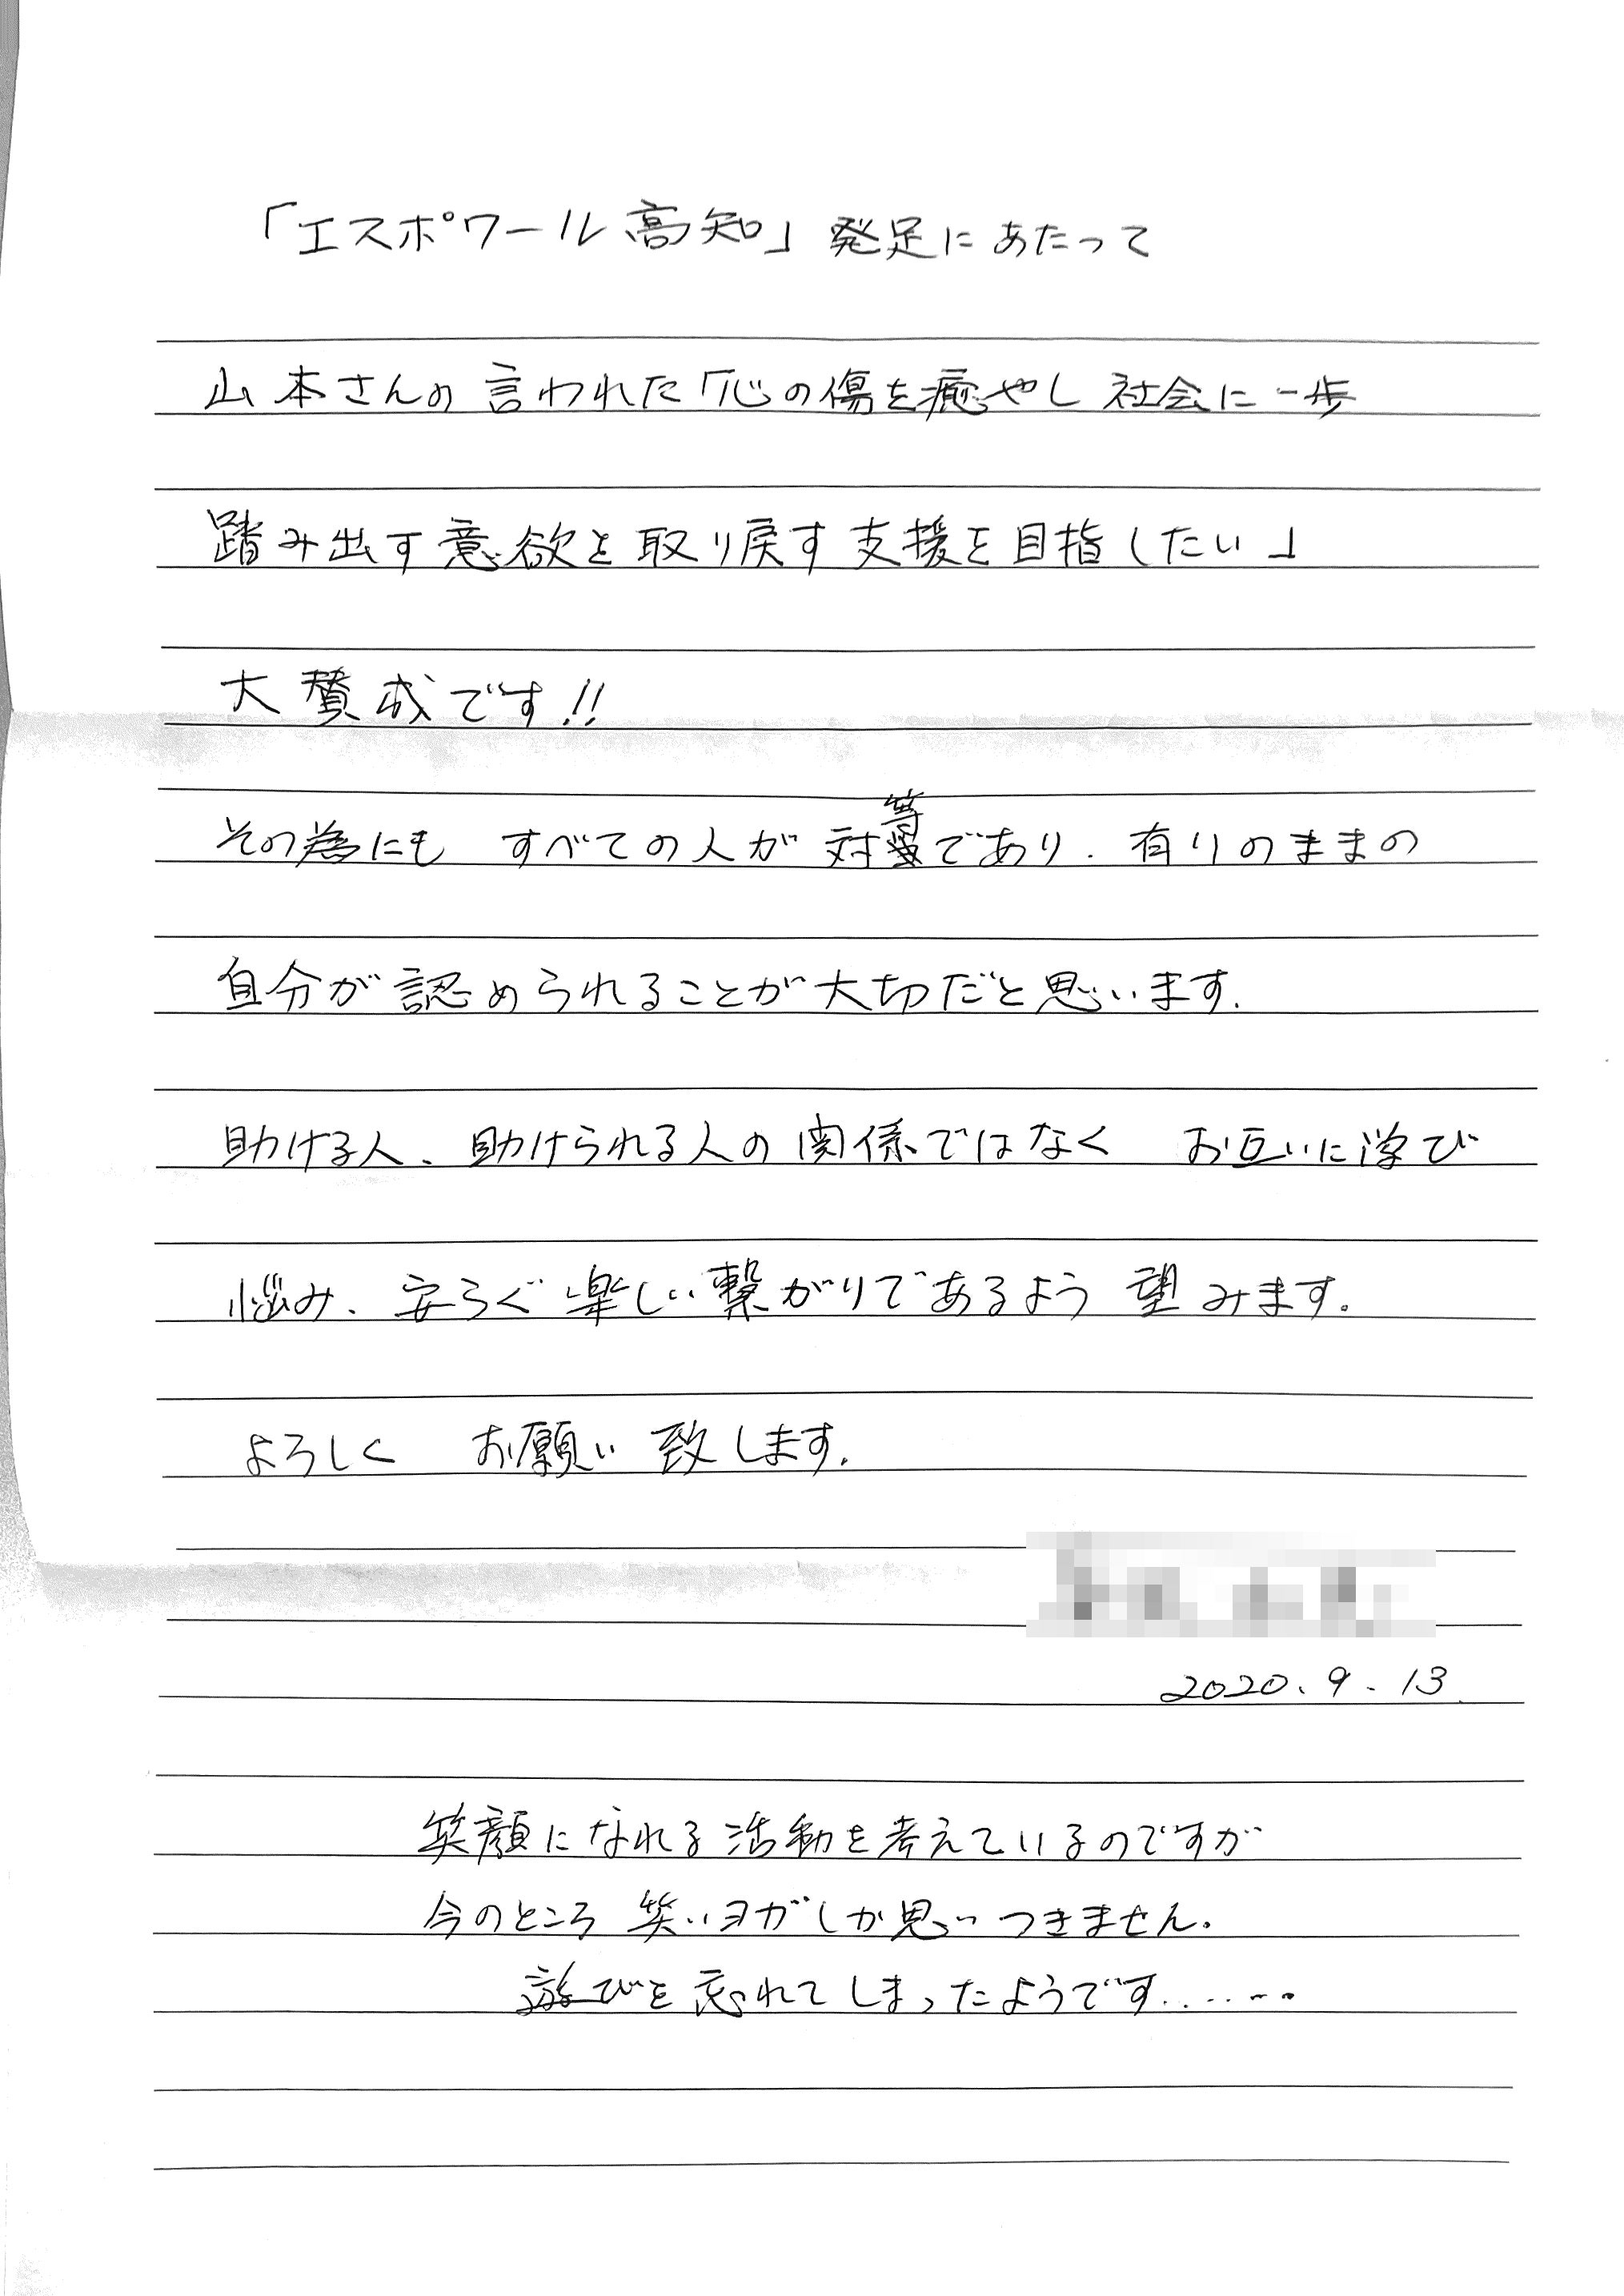 「エスポワール高知」発足にあたって
山本さんの言われた「心の傷を癒やし 社会に一歩
踏み出す意欲を取り戻す支援を目指したい」
大賛成です!!
その為にも すべての人が 対等であり、有りのままの
自分が認められることが大切だと思います。
助ける人、助けられる人の関係ではなく お互いに学び
悩み、安らぐ楽しい繋がりであるよう望みます。
よろしく お願い致します。
2020.9.13
笑顔になれる活動を考えているのですが
今のところ 笑いヨガしか思いつきません。
遊びを忘れてしまったようです.......